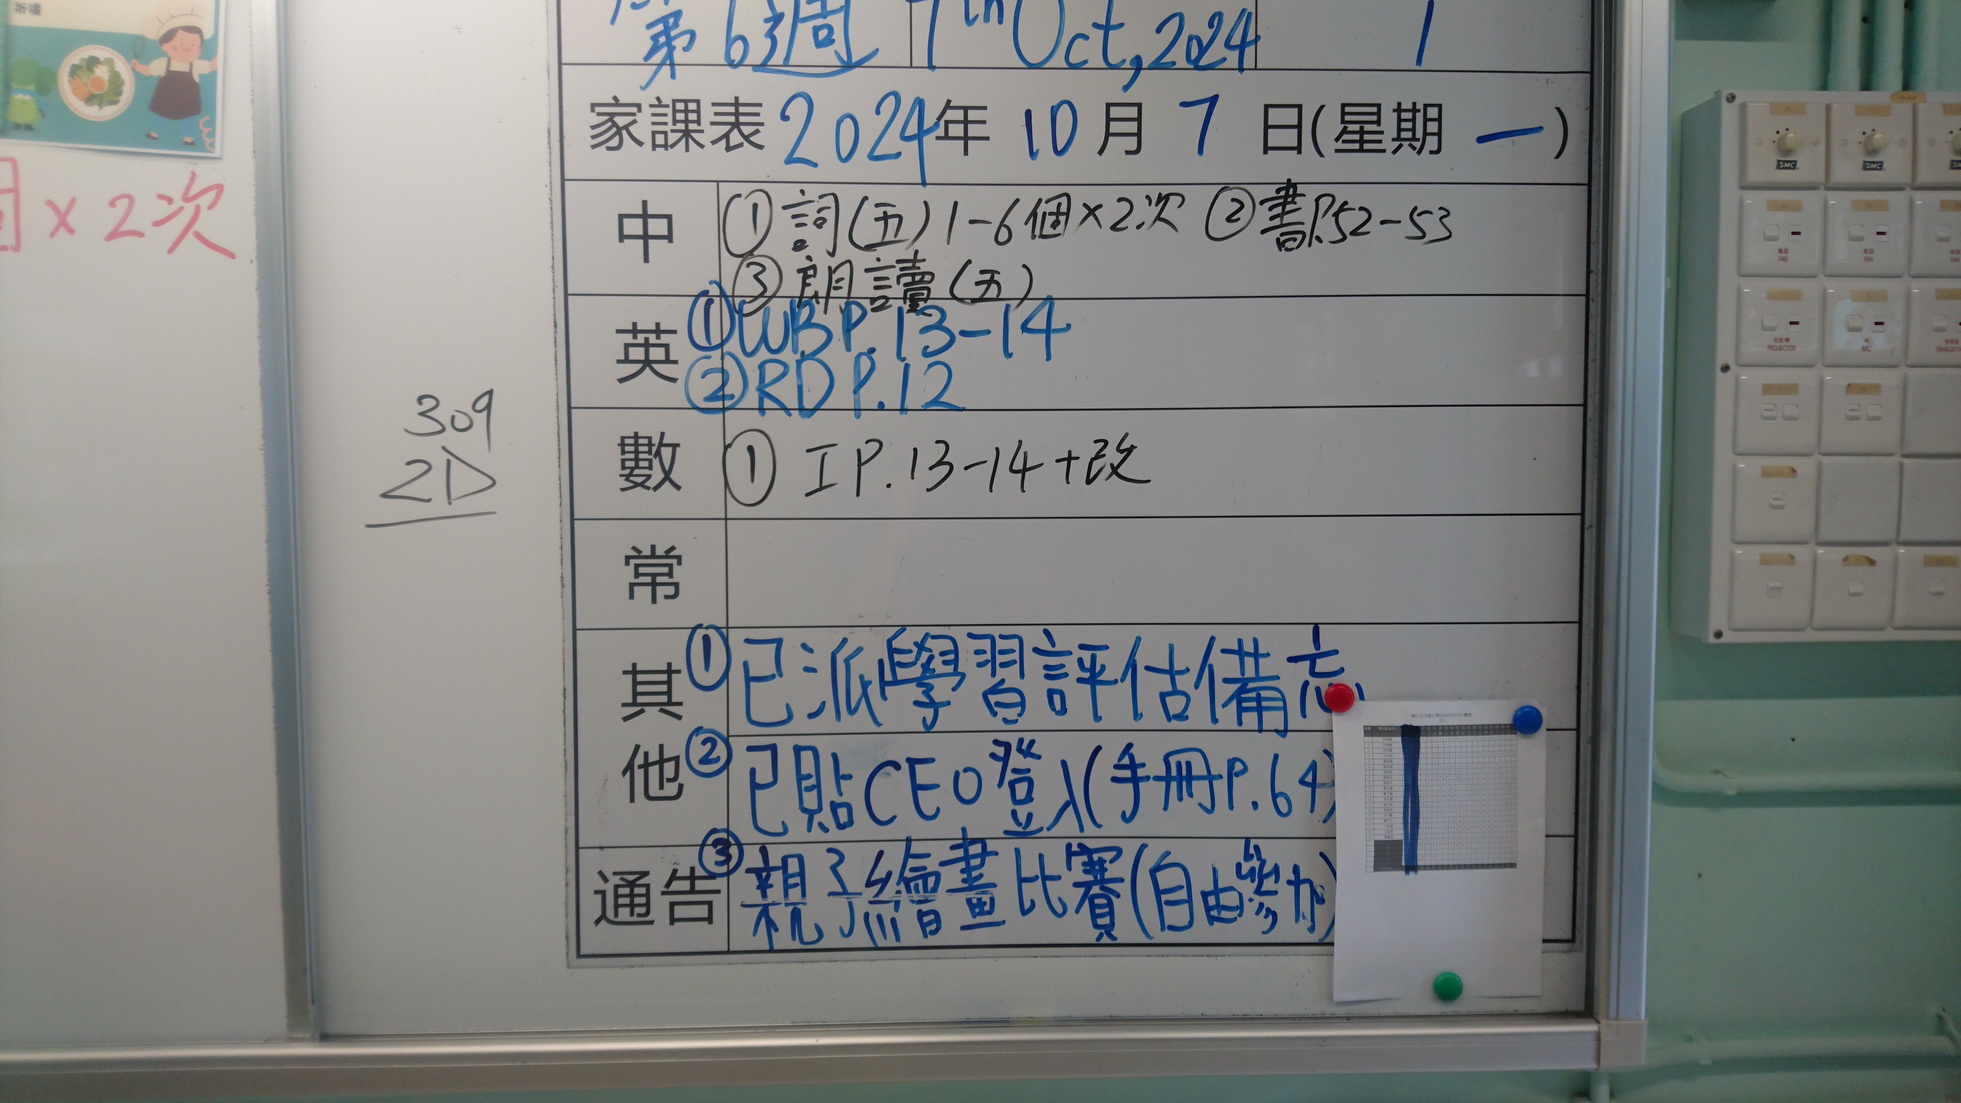 祈禱
個×2次
309
2D
第6週 7th Oct, 2024 1
家課表 2024年 10月 7日(星期一)
中 ①詞(五)1-6個×2次 ②書P.52-53
③朗讀(五)
英 ①WB P.13-14
②RD P.12
數 ① IP.13-14+改
常
其他 ①已派學習評估備忘
②已貼CEO登入(手冊P.64)
通告 ③親子繪畫比賽(自由參加)
SMC
SMC
PROJECTOR